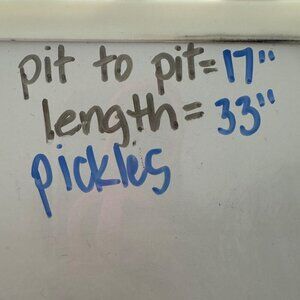 pit to pit= 17"
length= 33"
pickles